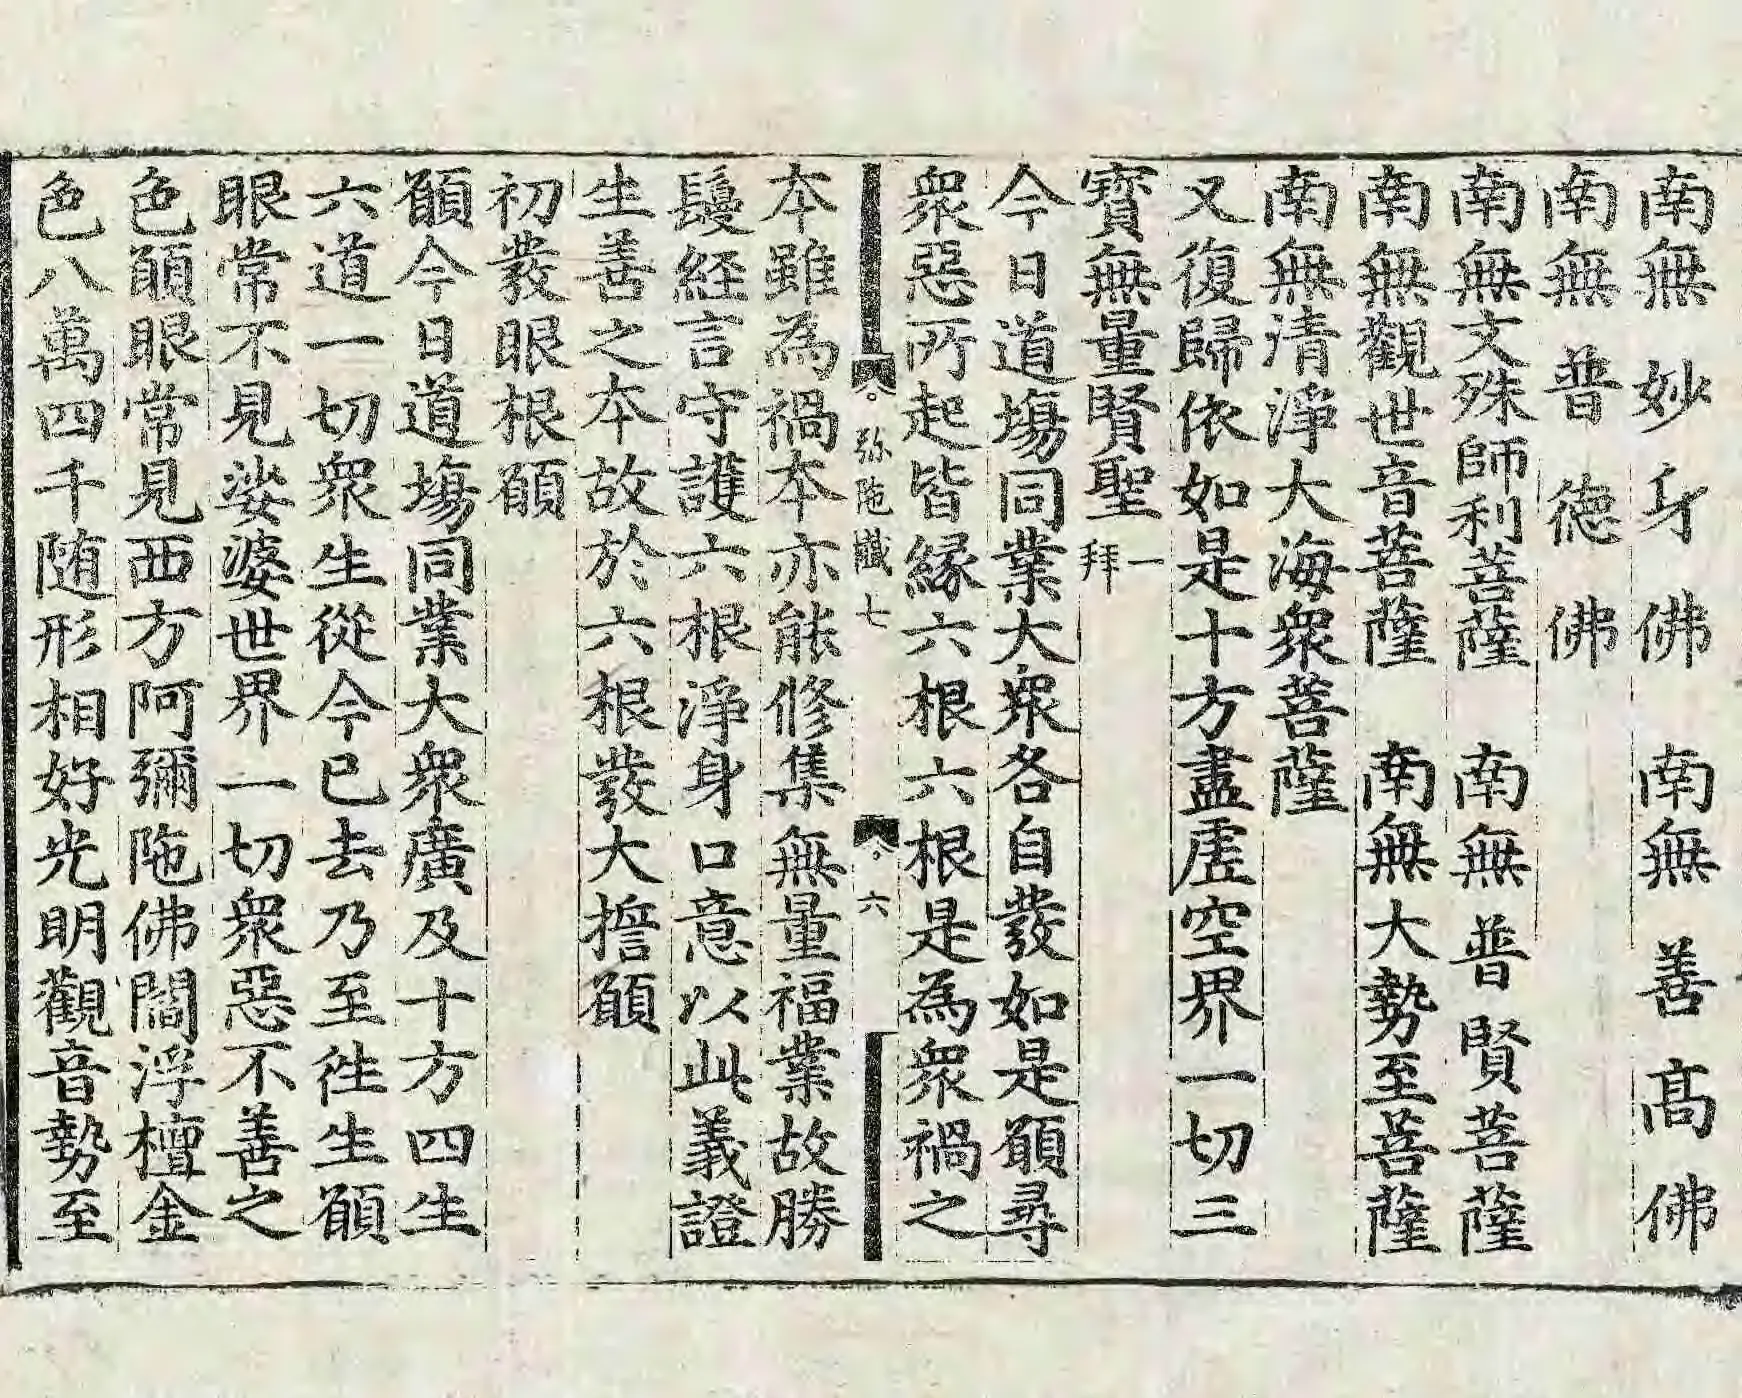 南無妙身佛　南無善高佛
南無普德佛
南無文殊師利菩薩　南無普賢菩薩
南無觀世音菩薩　南無大勢至菩薩
南無清淨大海衆菩薩
又復歸依如是十方盡虛空界一切三
寶無量賢聖一拜
今日道塲同業大衆各自發如是願尋
衆惡所起皆緣六根六根是為衆禍之
弥陁懺七　六
本雖為禍本亦能修集無量福業故勝
鬘経言守護六根淨身口意以此義證
生善之本故於六根發大擔願
初發眼根願
願今日道塲同業大衆廣及十方四生
六道一切衆生從今已去乃至徃生願
眼常不見娑婆世界一切衆惡不善之
色願眼常見西方阿彌陁佛閻浮檀金
色八萬四千随形相好光明觀音勢至